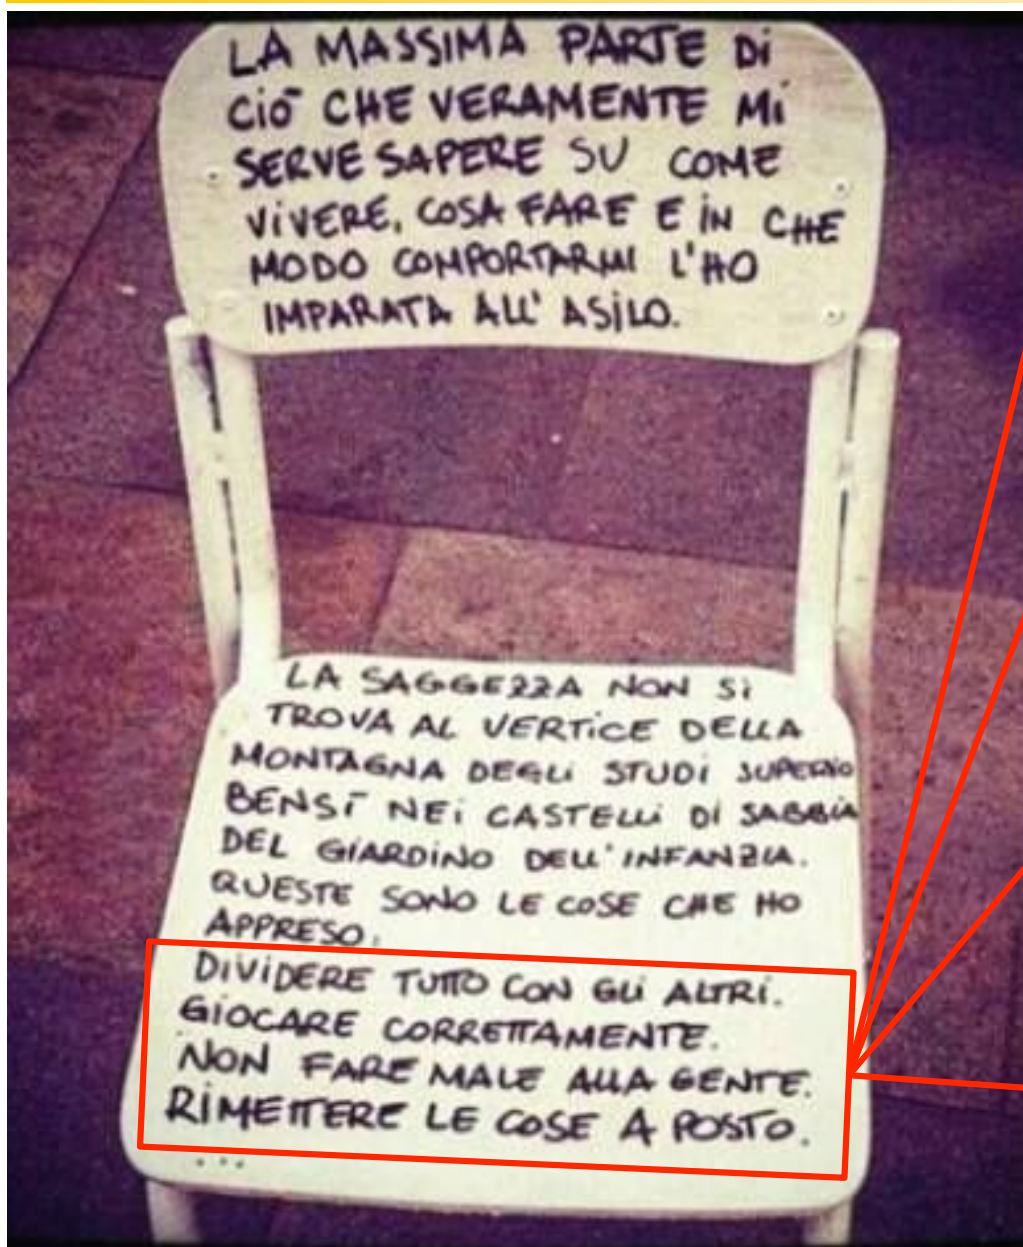 LA MASSIMA PARTE Di
Ciò CHE VERAMENTE Mi
SERVE SAPERE SU COME
ViVERE, COSA FARE E iN CHE
MODO COMPORTARMI L'HO
IMPARATA ALL'ASiLO.
LA SAGGEZZA NON Si
TROVA AL VERTiCE DELLA
MONTAGNA DEGLi STUDi SUPERIO
BENSÌ NEi CASTELLi Di SABBIA
DEL GIARDiNO DELL'INFANZIA.
QUESTE SONO LE COSE CHE HO
APPRESO:
DiViDERE TUTTO CON GLi ALTRi.
GIOCARE CORRETTAMENTE.
NON FARE MALE ALLA GENTE.
RiMETTERE LE COSE A POSTO.
...